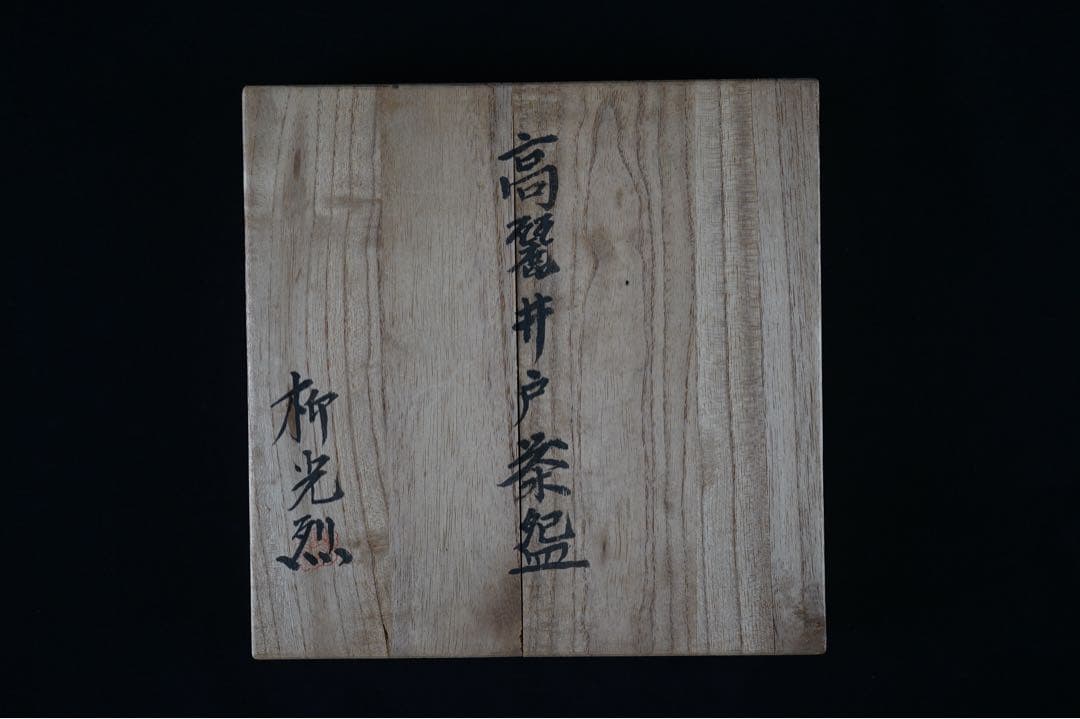 高麗井戸茶盌
柳光烈